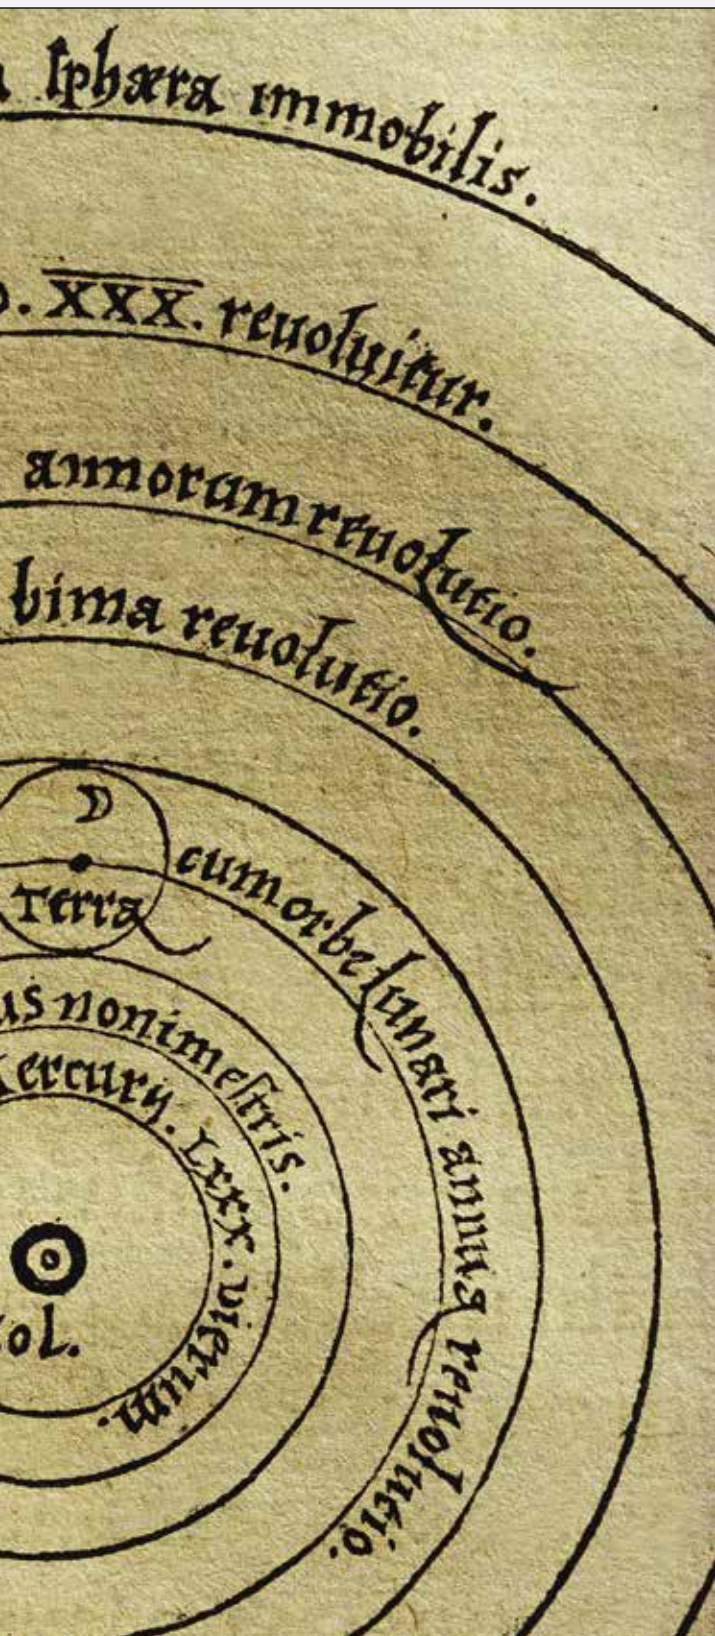 sphæra immobilis.
XXX. reuoluitur.
annorum reuolutio.
bima reuolutio.
Terra cum orbe lunari annua reuolutio.
nonimestris.
Mercurij. LXXX. dierum.
Sol.